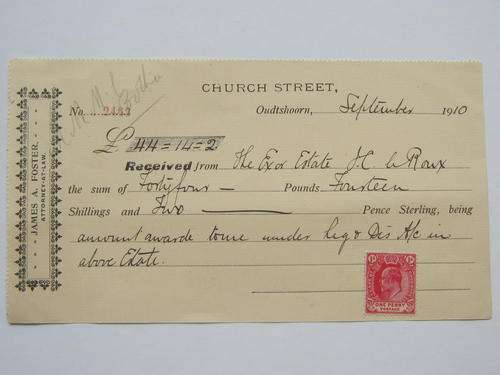 CHURCH STREET,
No. 2483 Oudtshoorn, September 1910
£ 44=14=2
Received from The Exor Estate H. le Roux
the sum of Fortyfour — Pounds Fourteen
Shillings and Two — Pence Sterling, being
amount awarde tome under liq & Dis A/c in
above Estate.
JAMES A. FOSTER,
ATTORNEY-AT-LAW.
1d 1d
ONE PENNY
POSTAGE